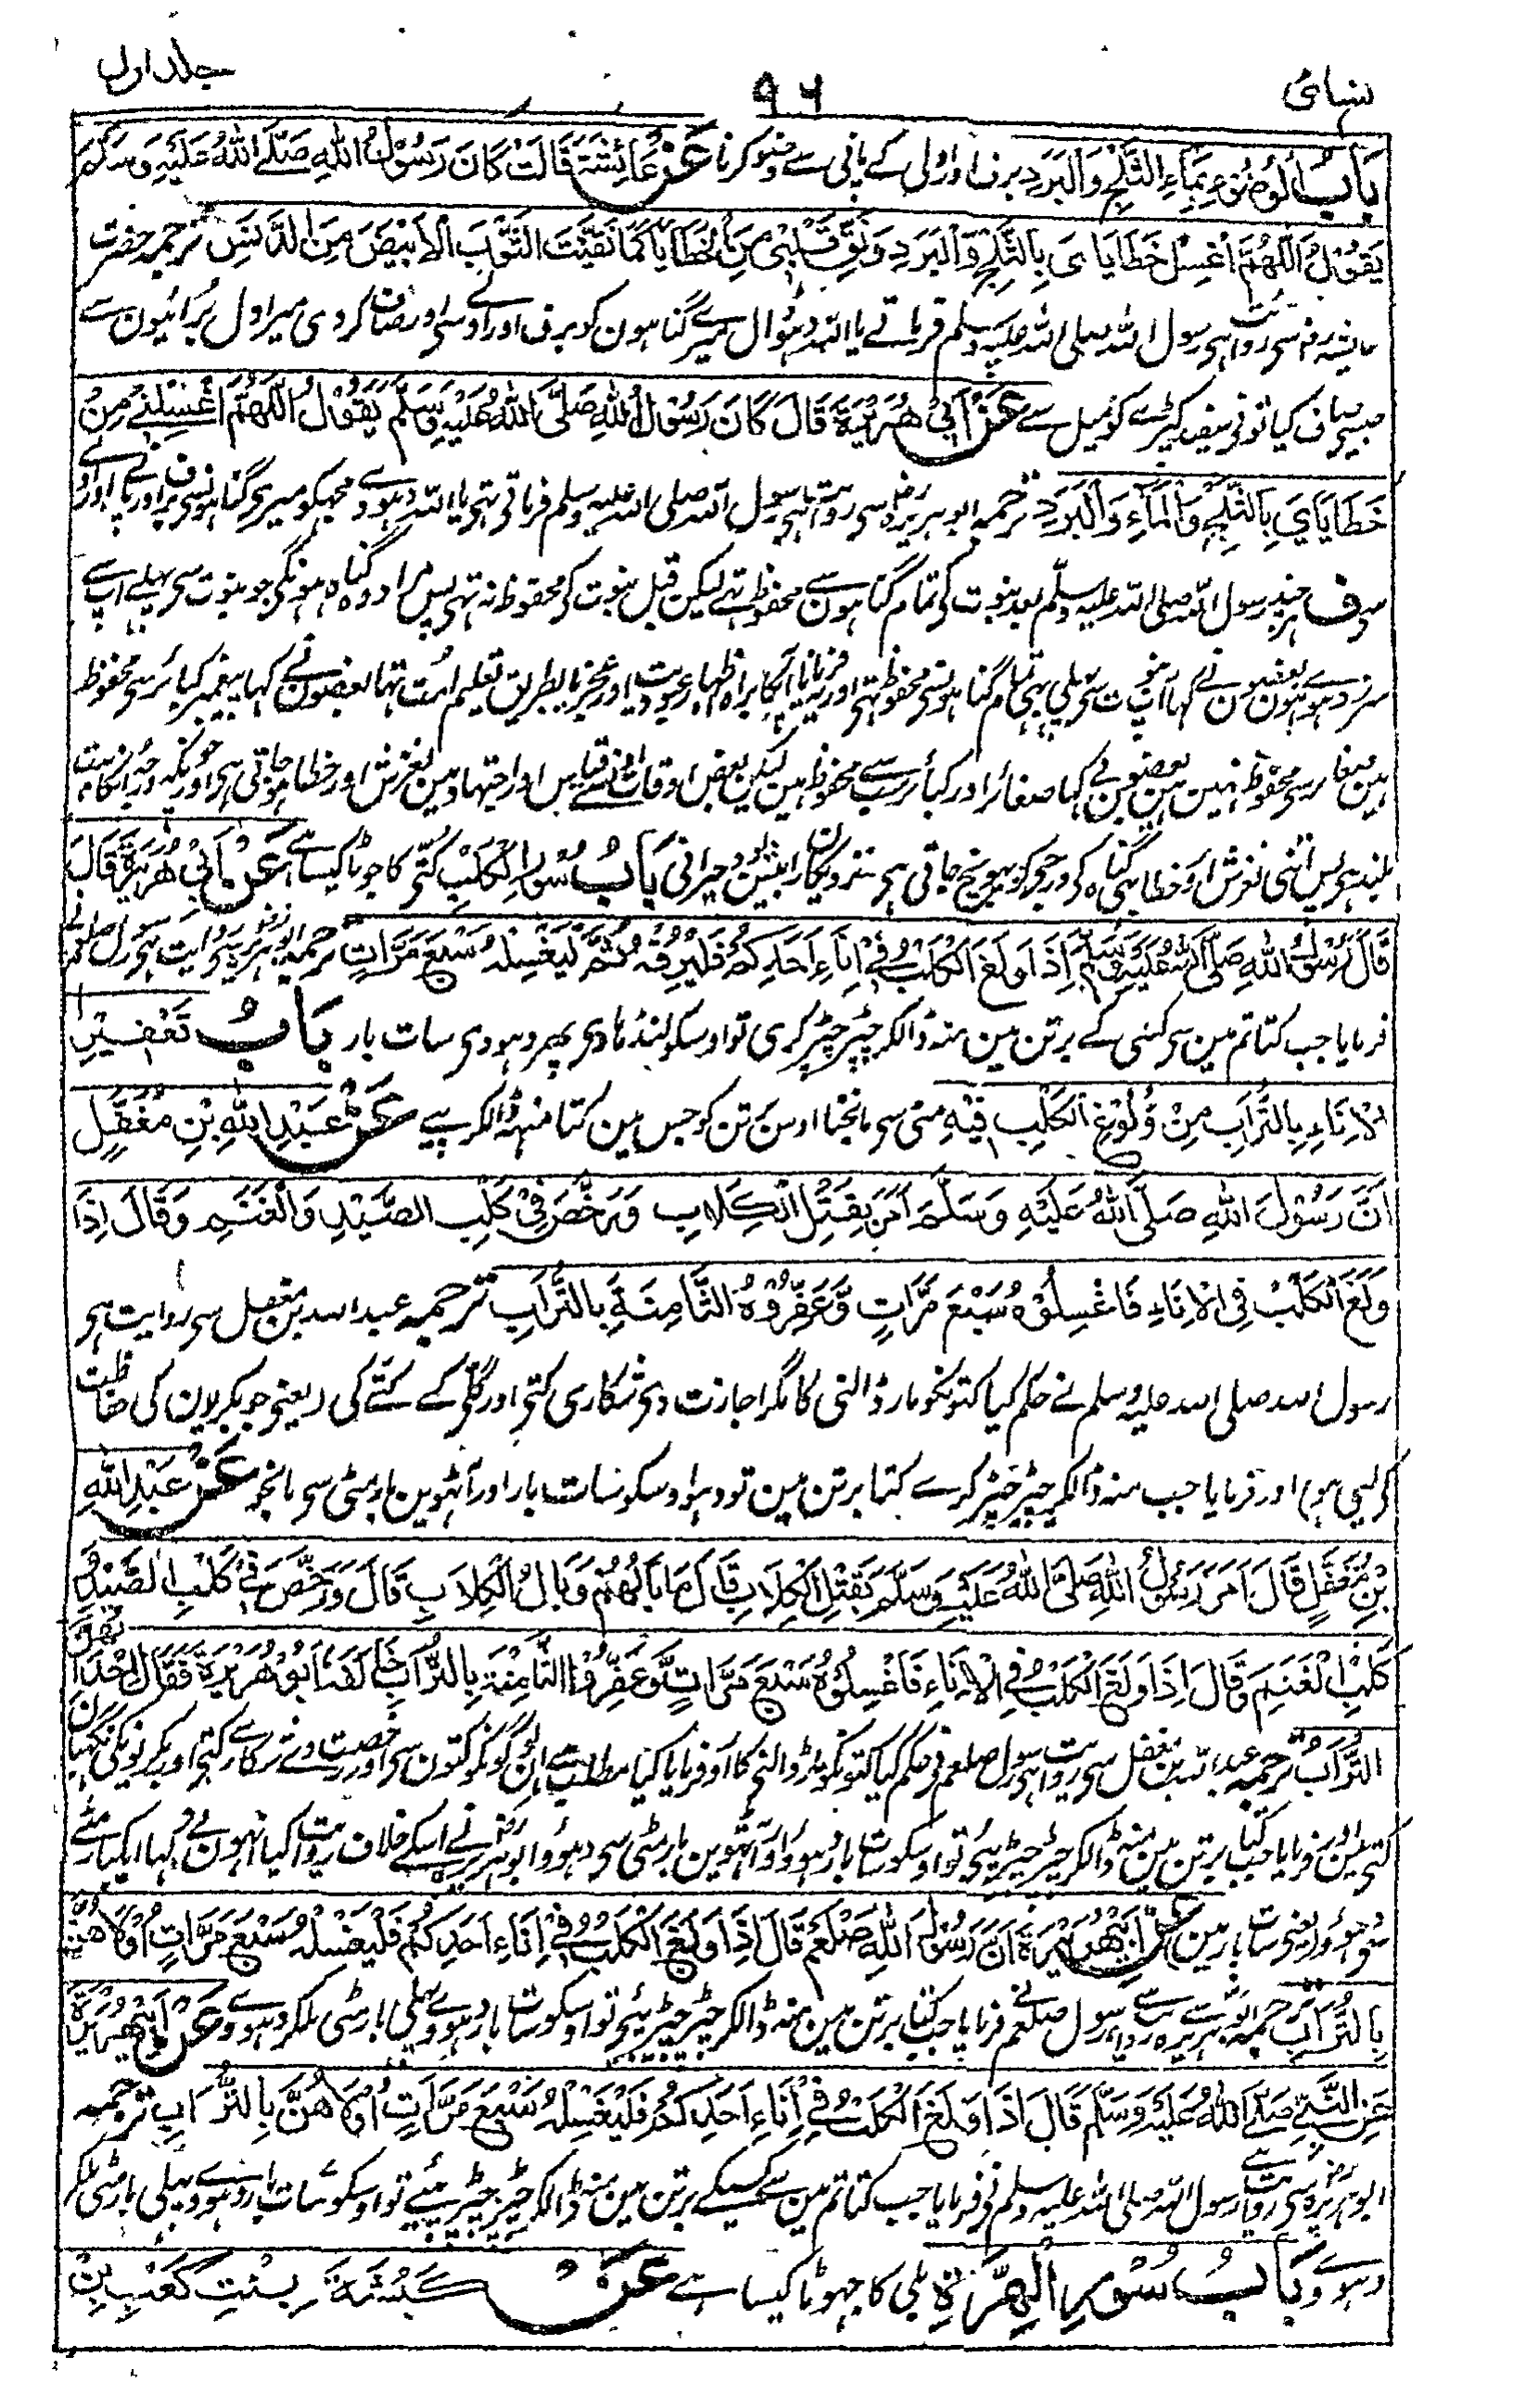 نسائی ۹۶ جلد اول
بَابُ الْوُضُوْءِ بِمَاءِ الثَّلْجِ وَالْبَرَدِ برف اور اولی کے پانی سے وضو کرنا عَنْ عَائِشَةَ قَالَتْ كَانَ رَسُوْلُ اللهِ صَلَّى اللهُ عَلَيْهِ وَسَلَّمَ
يَقُوْلُ اَللّٰهُمَّ اغْسِلْ خَطَايَاىَ بِالثَّلْجِ وَالْبَرَدِ وَنَقِّ قَلْبِىْ مِنَ الْخَطَايَا كَمَا نَقَّيْتَ الثَّوْبَ الْاَبْيَضَ مِنَ الدَّنَسِ ترجمہ حضرت
عایشہ رض سی روایت ہی رسول اللہ صلی اللہ علیہ وسلم فرماتے یا اللہ دہو ڈال میرے گناہون کو برف اور اولے سی اور صاف کر دی میرا دل برائیون سے
جیسی صاف کیا تونی سفید کپڑے کو میل سے عَنْ اَبِىْ هُرَيْرَةَ قَالَ كَانَ رَسُوْلُ اللهِ صَلَّى اللهُ عَلَيْهِ وَسَلَّمَ يَقُوْلُ اَللّٰهُمَّ اغْسِلْنِىْ مِنْ
خَطَايَاىَ بِالثَّلْجِ وَالْمَاءِ وَالْبَرَدِ ترجمہ ابو ہریرہ رض سی روایت ہی رسول اللہ صلی اللہ علیہ وسلم فرماتی تہی یا اللہ دہو دے مجہکو میری گناہونسی برف اور پانی اور اولے
سی ف ہر چند رسول اللہ صلی اللہ علیہ وسلم بعد نبوت کی تمام گناہون سے محفوظ تہے لیکن قبل نبوت کی محفوظ نہ تہی پس مراد وہ گناہ ہونگی جو نبوت سی پہلے آپ سے
سرزد ہوے ہون بعضون نے کہا آپ نبوت سی پہلی بہی تمام گناہونسی محفوظ تہی اور یہ فرمانا آپکا براہ اظہار عبودیت اور عجز یا بطریق تعلیم امت تہا بعضون نے کہا پیغمبر کبائر سی محفوظ
ہین صغائر سی محفوظ نہین ہین بعضون نی کہا صغائر اور کبائر سب سے محفوظ ہین لیکن بعض اوقات انسے قیاس اور اجتہاد مین لغزش اور خطا ہو جاتی ہی اور چونکہ درجہ انکا بہت
بلند ہی پس اتنی لغزش اور خطا بہی گناہ کی درجی کو پہونچ جاتی ہی نزدیکان را بیش بود حیرانی بَابُ سُؤْرِ الْكَلْبِ کتی کا جوٹا کیسا ہے عَنْ اَبِىْ هُرَيْرَةَ قَالَ
قَالَ رَسُوْلُ اللهِ صَلَّى اللهُ عَلَيْهِ وَسَلَّمَ اِذَا وَلَغَ الْكَلْبُ فِىْ اِنَاءِ اَحَدِكُمْ فَلْيُرِقْهُ ثُمَّ لْيَغْسِلْهُ سَبْعَ مَرَّاتٍ ترجمہ ابو ہریرہ رض سی روایت ہی رسول صلعم نے
فرمایا جب کتا تم مین سی کسی کے برتن مین منہ ڈالکر چپڑ چپڑ کری تو اوسکو لنڈہا دی پہر دہووی سات بار بَابُ تَعْفِيْرِ
الْاِنَاءِ بِالتُّرَابِ مِنْ وُّلُوْغِ الْكَلْبِ فِيْهِ مٹی سی مانجنا اوس برتن کو جس مین کتا منہ ڈالکر پیے عَنْ عَبْدِ اللهِ بْنِ مُغَفَّلٍ
اَنَّ رَسُوْلَ اللهِ صَلَّى اللهُ عَلَيْهِ وَسَلَّمَ اَمَرَ بِقَتْلِ الْكِلَابِ وَرَخَّصَ فِىْ كَلْبِ الصَّيْدِ وَالْغَنَمِ وَقَالَ اِذَا
وَلَغَ الْكَلْبُ فِى الْاِنَاءِ فَاغْسِلُوْهُ سَبْعَ مَرَّاتٍ وَّعَفِّرُوْهُ الثَّامِنَةَ بِالتُّرَابِ ترجمہ عبد اللہ بن مغفل سی روایت ہی
رسول اللہ صلی اللہ علیہ وسلم نے حکم کیا کتونکو مار ڈالنی کا مگر اجازت دی شکاری کتی اور گلی کے کتّے کی (یعنی جو بکریون کی حفاظت
کرلیی ہو) اور فرمایا جب منہ ڈالکر چپڑ چپڑ کرے کتا برتن مین تو دہوو اوسکو سات بار اور آٹہوین بار مٹی سی مانجہو عَنْ عَبْدِ اللهِ
بْنِ مُغَفَّلٍ قَالَ اَمَرَ رَسُوْلُ اللهِ صَلَّى اللهُ عَلَيْهِ وَسَلَّمَ بِقَتْلِ الْكِلَابِ قَالَ مَا بَالُهُمْ وَبَالُ الْكِلَابِ قَالَ وَرَخَّصَ فِىْ كَلْبِ الصَّيْدِ وَ
كَلْبِ الْغَنَمِ وَقَالَ اِذَا وَلَغَ الْكَلْبُ فِى الْاِنَاءِ فَاغْسِلُوْهُ سَبْعَ مَرَّاتٍ وَّعَفِّرُوا الثَّامِنَةَ بِالتُّرَابِ خَالَفَهُ اَبُوْ هُرَيْرَةَ فَقَالَ اِحْدٰىهُنَّ
التُّرَابُ ترجمہ عبد اللہ بن مغفل سی روایت ہی رسول صلعم نی حکم کیا کتونکو مار ڈالنی کا اور فرمایا کیا مطلب ہے ان لوگونکو کتون سی اور رخصت دی شکاری کتی اور بکریونکی نگہبان
کتی مین اور فرمایا جب کتا برتن مین منہ ڈالکر چپڑ چپڑ پیی تو اوسکو سات بار دہوو اور آٹہوین بار مٹی سی دہوو ابو ہریرہ رض نے اسکے خلاف روایت کیا انہون نے کہا ایکبار مٹی
سی دہوو (یعنی سات بار مین) عَنْ اَبِىْ هُرَيْرَةَ اَنَّ رَسُوْلَ اللهِ صَلْعَمْ قَالَ اِذَا وَلَغَ الْكَلْبُ فِىْ اِنَاءِ اَحَدِكُمْ فَلْيَغْسِلْهُ سَبْعَ مَرَّاتٍ اُوْلَاهُنَّ
بِالتُّرَابِ ترجمہ ابو ہریرہ سے روایت ہے رسول صلعم نے فرمایا جب کتا برتن مین منہ ڈالکر چپڑ چپڑ پیئی تو اوسکو سات بار دہووے پہلی بار مٹی ملکر دہووے عَنْ اَبِىْ هُرَيْرَةَ
عَنِ النَّبِىِّ صَلَّى اللهُ عَلَيْهِ وَسَلَّمَ قَالَ اِذَا وَلَغَ الْكَلْبُ فِىْ اِنَاءِ اَحَدِكُمْ فَلْيَغْسِلْهُ سَبْعَ مَرَّاتٍ اُوْلَاهُنَّ بِالتُّرَابِ ترجمہ
ابو ہریرہ رض سی روایت ہے رسول اللہ صلی اللہ علیہ وسلم نی فرمایا جب کتا تم مین سے کسیکے برتن مین منہ ڈالکر چپڑ چپڑ پیئے تو اوسکو سات بار دہووے پہلی بار مٹی ملکر
دہووے بَابُ سُؤْرِ الْهِرَّةِ بلی کا جہوٹا کیسا ہے عَنْ كَبْشَةَ بِنْتِ كَعْبِ بْنِ